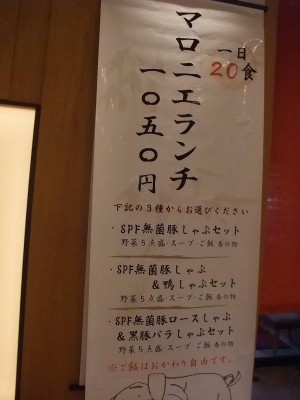 一日
20食
マロニエランチ
一〇五〇円
下記の3種からお選びください
・SPF無菌豚しゃぶセット
野菜5点盛 スープ ご飯 香の物
・SPF無菌豚しゃぶ
&鴨しゃぶセット
野菜5点盛 スープ ご飯 香の物
・SPF無菌豚ロースしゃぶ
&黒豚バラしゃぶセット
野菜5点盛 スープ ご飯 香の物
※ご飯はおかわり自由です。